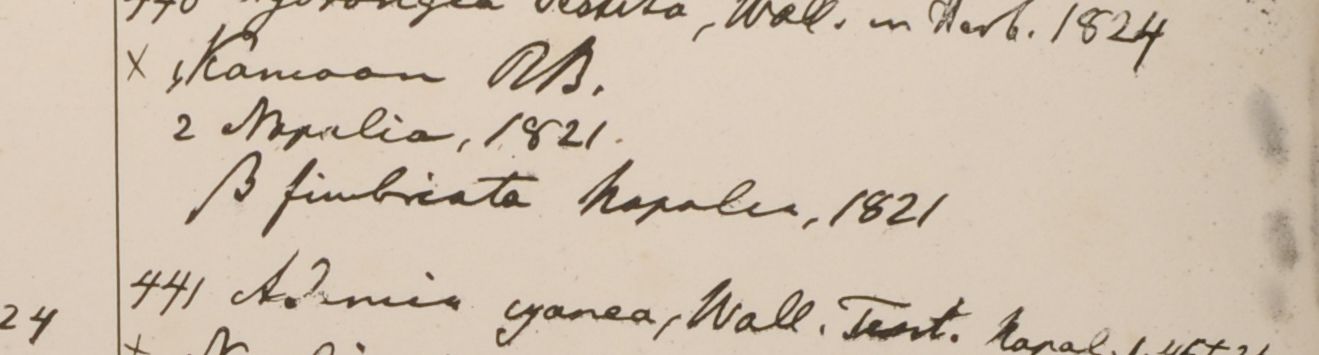 440 Hydrangea vestita, Wall. in Herb. 1824
× , Kamoon RB.
2 Napalia, 1821.
β fimbriata Napalia, 1821
441 Adamia cyanea, Wall. Tent. Napal.
24